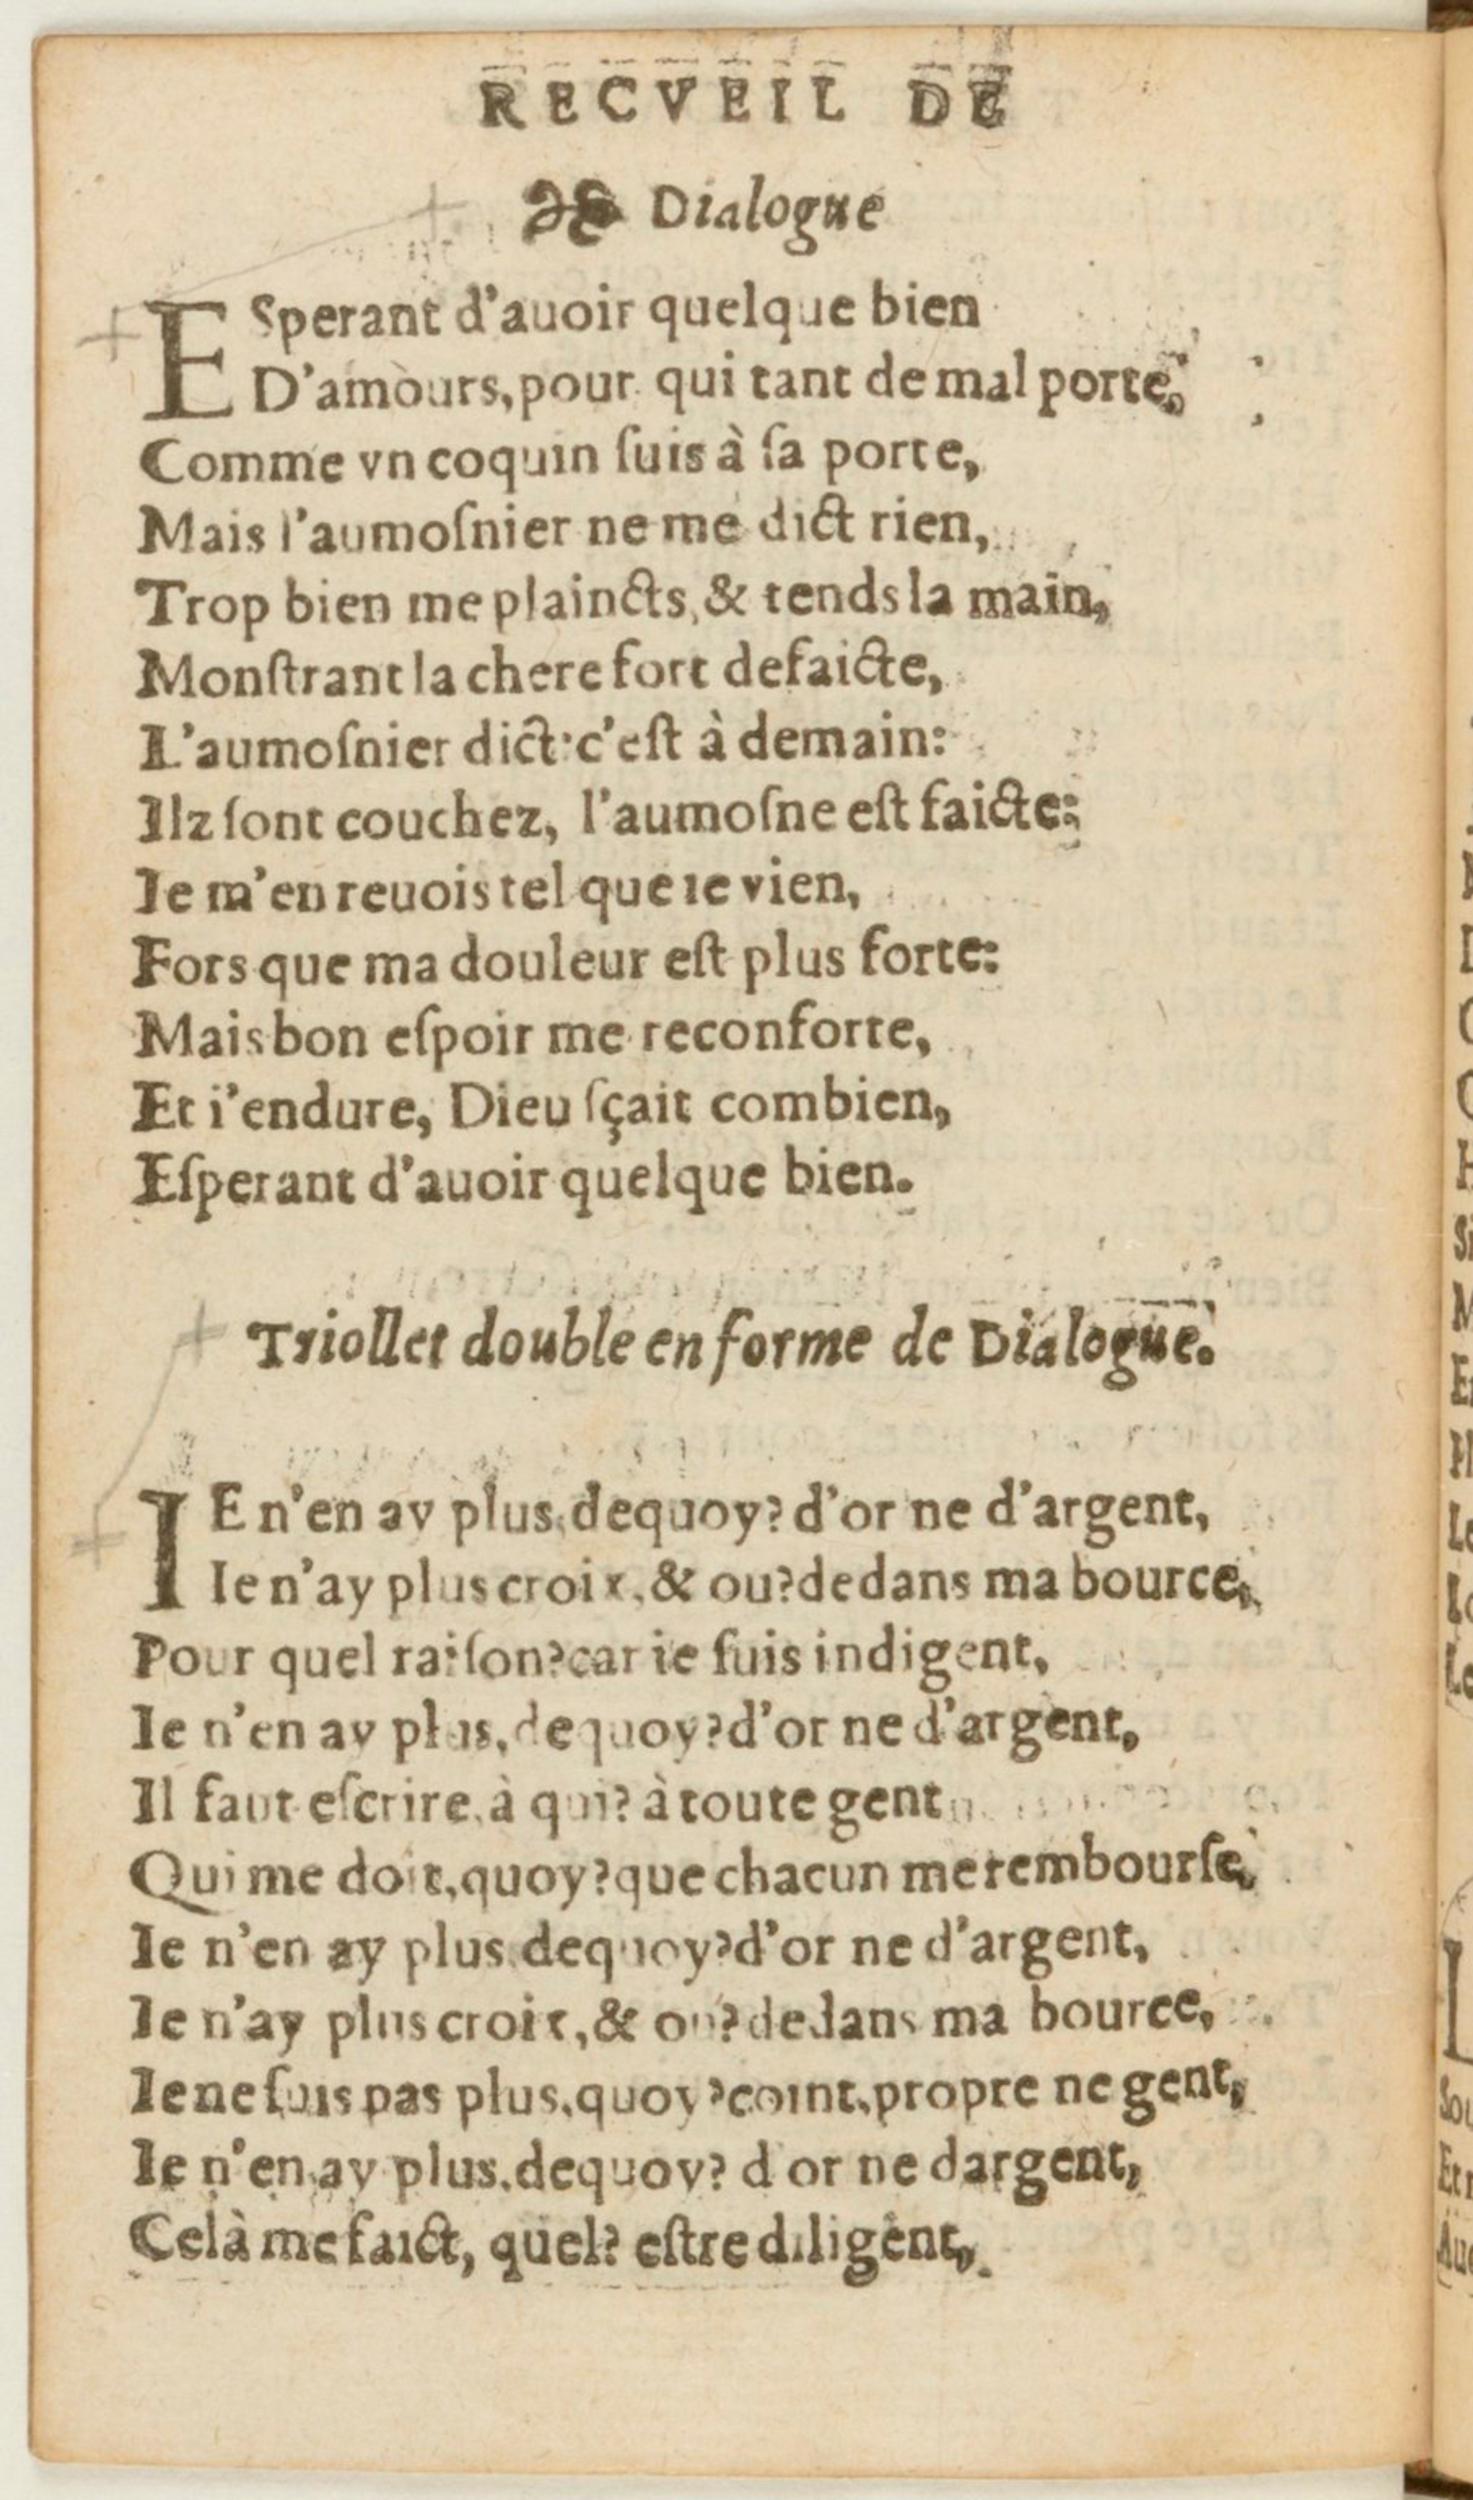 RECVEIL DE
Dialogue
ESperant d'auoir quelque bien
D'amours, pour qui tant de mal porte,
Comme vn coquin ſuis à ſa porte,
Mais l'aumoſnier ne me dict rien,
Trop bien me plaincts, & tends la main,
Monſtrant la chere fort defaicte,
L'aumoſnier dict: c'eſt à demain:
Ilz ſont couchez, l'aumoſne eſt faicte:
Ie m'en reuois tel que ie vien,
Fors que ma douleur eſt plus forte:
Mais bon eſpoir me reconforte,
Et i'endure, Dieu ſçait combien,
Eſperant d'auoir quelque bien.
Triollet double en forme de Dialogue.
IE n'en ay plus, dequoy? d'or ne d'argent,
Ie n'ay plus croix, & ou? dedans ma bource,
Pour quel raiſon? car ie ſuis indigent,
Ie n'en ay plus, dequoy? d'or ne d'argent,
Il faut eſcrire, à qui? à toute gent
Qui me doit, quoy? que chacun me rembourſe,
Ie n'en ay plus dequoy? d'or ne d'argent,
Ie n'ay plus croix, & ou? dedans ma bource,
Ie ne ſuis pas plus, quoy? coint, propre ne gent,
Ie n'en ay plus, dequoy? d'or ne dargent,
Celà me faict, quel? eſtre diligent,